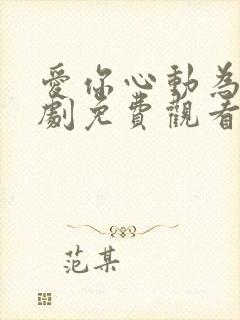 愛你心動為
劇免費觀看
范某